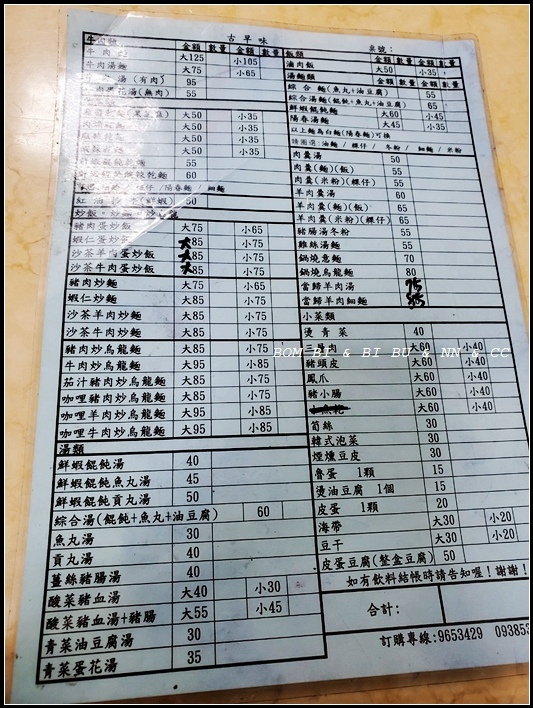 古早味
桌號：
金額 數量 金額 數量
大125 小105
牛肉湯麵 大75 小65
湯(有肉) 95
蛋花湯(無肉) 55
大50 小35
大50 小35
大50 小35
大50 小35
55
60
/陽春麵/細麵
紅油 50
炒飯．炒
豬肉蛋炒飯 大75 小65
蝦仁蛋炒飯 大85 小75
沙茶羊肉蛋炒飯 大85 小75
沙茶牛肉蛋炒飯 大85 小75
豬肉炒麵 大75 小65
蝦仁炒麵 大85 小75
沙茶羊肉炒麵 大85 小75
沙茶牛肉炒麵 大85 小75
豬肉炒烏龍麵 大85 小75
牛肉炒烏龍麵 大95 小85
茄汁豬肉炒烏龍麵 大85 小75
咖哩豬肉炒烏龍麵 大85 小75
咖哩羊肉炒烏龍麵 大95 小85
咖哩牛肉炒烏龍麵 大95 小85
湯類
鮮蝦餛飩湯 40
鮮蝦餛飩魚丸湯 45
鮮蝦餛飩貢丸湯 50
綜合湯(餛飩+魚丸+油豆腐) 60
魚丸湯 30
貢丸湯 40
薑絲豬腸湯 40
酸菜豬血湯 大40 小30
酸菜豬血湯+豬腸 大55 小45
青菜油豆腐湯 30
青菜蛋花湯 35
飯類 金額 數量 金額 數量
滷肉飯 大50 小35
湯麵類 金額 數量 金額 數量
綜合麵(魚丸+油豆腐) 55
綜合湯麵(餛飩+魚丸+油豆腐) 65
鮮蝦餛飩麵 大60 小45
陽春湯麵 大45 小35
以上麵為白麵(陽春麵)可換
請圈選:油麵 / 粿仔 / 冬粉 / 細麵 / 米粉
肉羹湯 50
肉羹(麵)(飯) 55
肉羹(米粉)(粿仔) 55
羊肉羹湯 60
羊肉羹(麵)(飯) 65
羊肉羹(米粉)(粿仔) 65
豬腸湯冬粉 55
雞絲湯麵 55
鍋燒意麵 70
鍋燒烏龍麵 80
當歸羊肉湯 75
當歸羊肉細麵
小菜類
燙青菜 40
三層肉 大60 小40
豬頭皮 大60 小40
鳳爪 大60 小40
豬小腸 大60 小40
30
筍絲 30
韓式泡菜 30
煙燻豆皮 30
魯蛋 1顆 15
燙油豆腐 1個 15
皮蛋 1顆 20
海帶 大30 小20
豆干 大30 小20
皮蛋豆腐(整盒豆腐) 50
如有飲料結帳時請告知喔！謝謝！
合計：
訂購專線:9653429 09385
BOM BI & BI BU & NN & CC